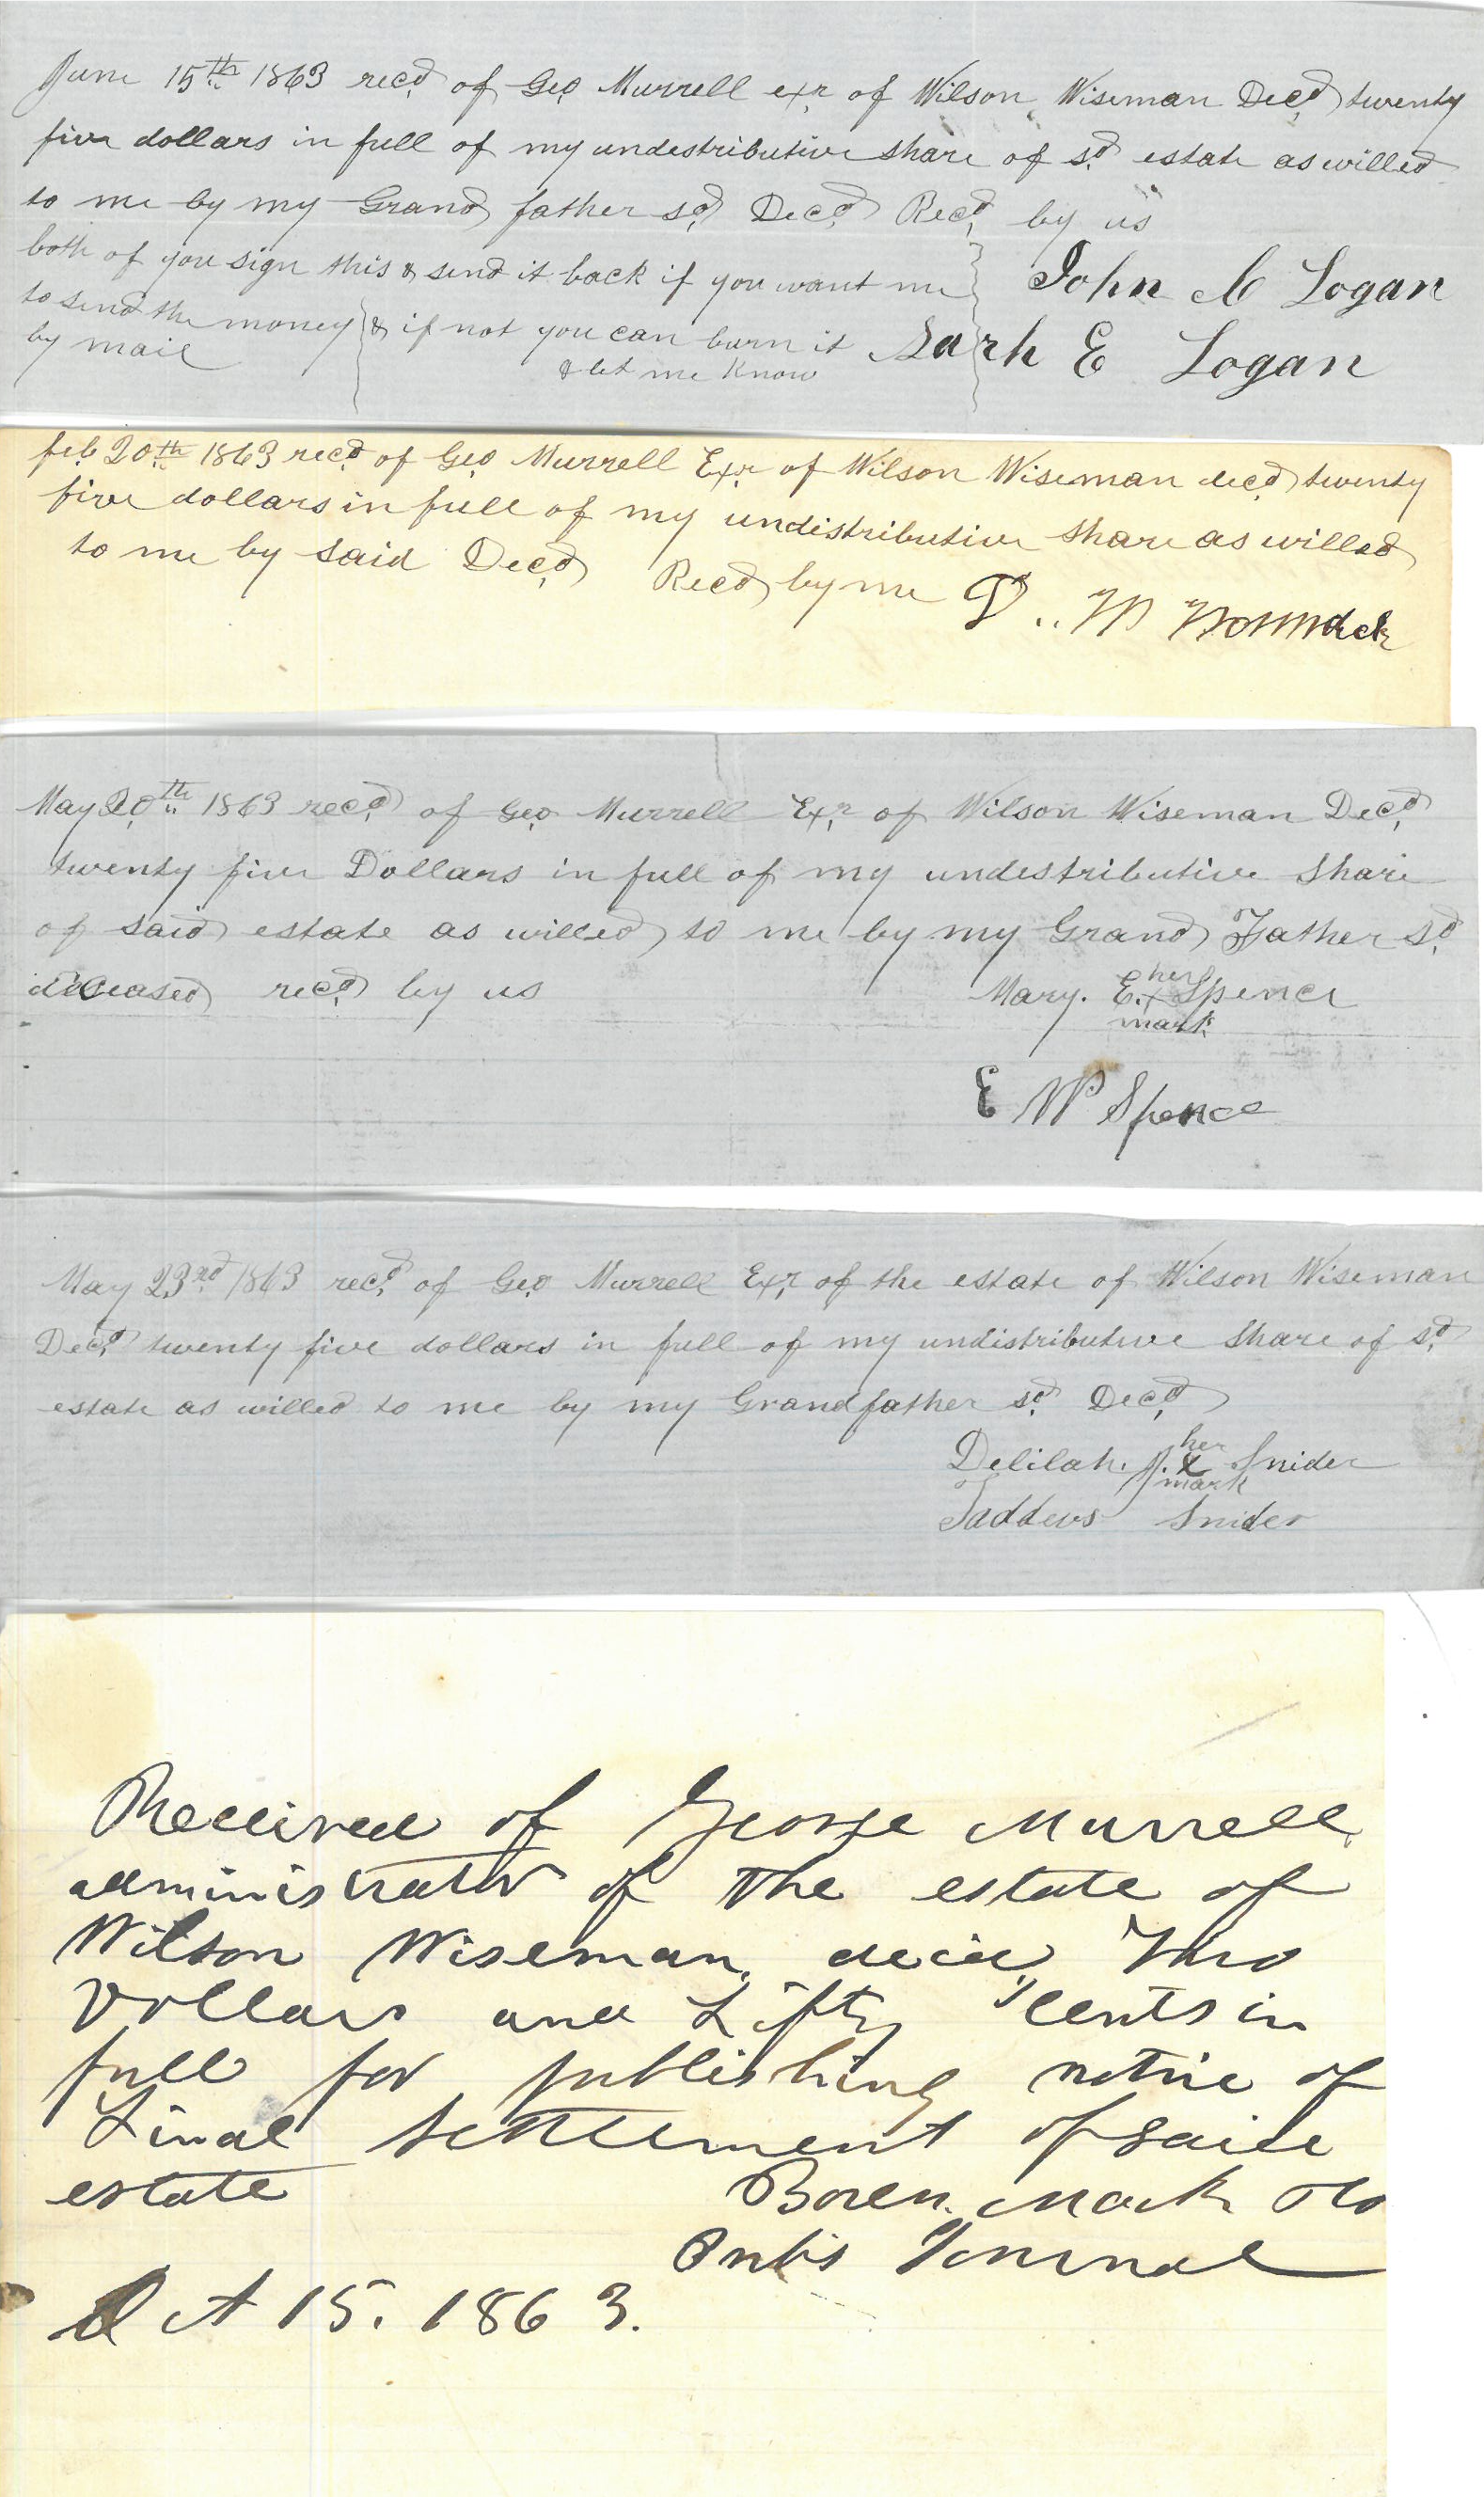 June 15th 1863 recd of Geo Murrell exr of Wilson Wiseman Decd twenty
five dollars in full of my undestributive share of sd estate as willed
to me by my Grand father sd Decd Recd by us
both of you sign this & send it back if you want me
to send the money & if not you can burn it
by mail & let me Know
John C Logan
Sarh E Logan
feb 20th 1863 recd of Geo Murrell Exr of Wilson Wiseman decd twenty
five dollars in full of my undistributive share as willed
to me by said Decd Recd by me
May 20th 1863 recd of Geo Murrell Exr of Wilson Wiseman Decd
twenty five Dollars in full of my undestributive Share
of said estate as willed to me by my Grand Father sd
deceased recd by us
Mary. E. her x Spence
mark
E W Spence
May 23rd 1863 recd of Geo Murrell Exr of the estate of Wilson Wiseman
Decd twenty five dollars in full of my undistributive Share of sd
estate as willed to me by my Grandfather sd Decd
Delilah. J. her x Snider
mark
Taddeus Snider
Received of George Murrell
administrator of the estate of
Wilson Wiseman, decd, Two
Dollars and Fifty Cents in
full for publishing notice of
Final Settlement of said
estate
Boren, Mack & Co
Pubs Journal
Oct 15. 1863.